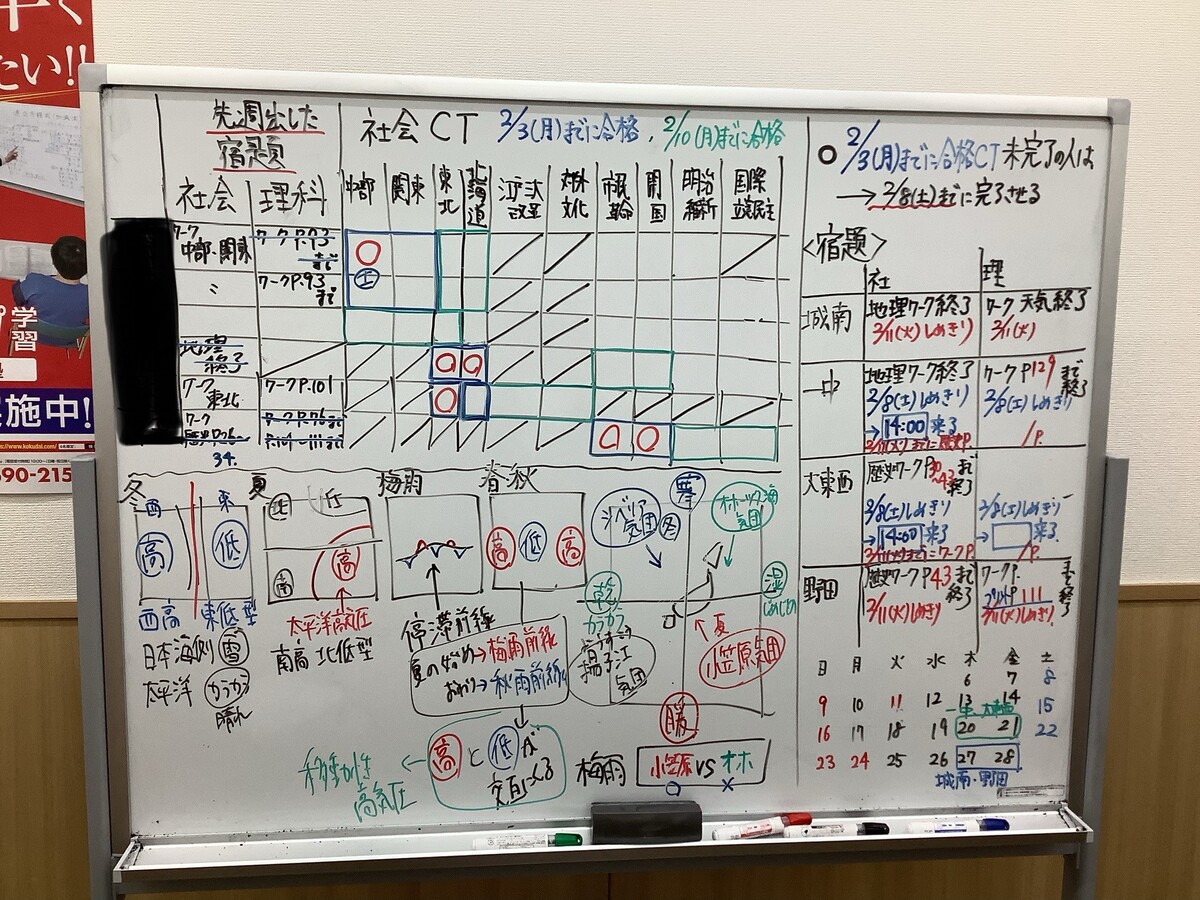 たい!!
学習
実施中!
690-215
先週出した
宿題
社会 理科
社会CT 2/3(月)までに合格, 2/10(月)までに合格
中部 関東 東北 北海道 江戸 改革 文化 開国 明治維新 国際
ワーク
中部・関東
ワークP.93
まで
〃
ワークP.93
まで
土
地理
終了
ワーク
東北
ワークP.101
ワーク
34.
2/3(月)までに合格CT 未完了の人は
→2/8(土)までに完了させる
<宿題>
社 理
城南
地理ワーク終了
2/11(火)しめきり
ワーク 天気終了
2/11(火)
一中
地理ワーク終了
2/8(土)しめきり
→14:00来る
ワークP129まで終了
2/8(土)しめきり
/P.
大東西
歴史ワークP30~43まで終了
2/8(土)しめきり
→14:00来る
2/8(土)しめきり
→ 来る
/P.
野田
歴史ワークP43まで終了
2/11(火)しめきり
ワークP.
プリントP111まで終了
2/11(火)しめきり
日 月 火 水 木 金 土
6 7 8
9 10 11 12 13 14 15
一中、大東西
16 17 18 19 20 21 22
23 24 25 26 27 28
城南・野田
冬
西 東
高 低
西高 東低型
日本海側 雪
太平洋 からから
晴れ
夏
北 低
高
南
太平洋高気圧
南高北低型
梅雨
停滞前線
夏の始め→梅雨前線
おわり→秋雨前線
春秋
高 低 高
高と低が
交互にくる
←移動性
高気圧
寒
シベリア
気団 冬
オホーツク海
気団
乾
からから
湿
じめじめ
揚子江
気団
夏
小笠原気団
暖
梅雨
小笠原 VS オホ
○ ×